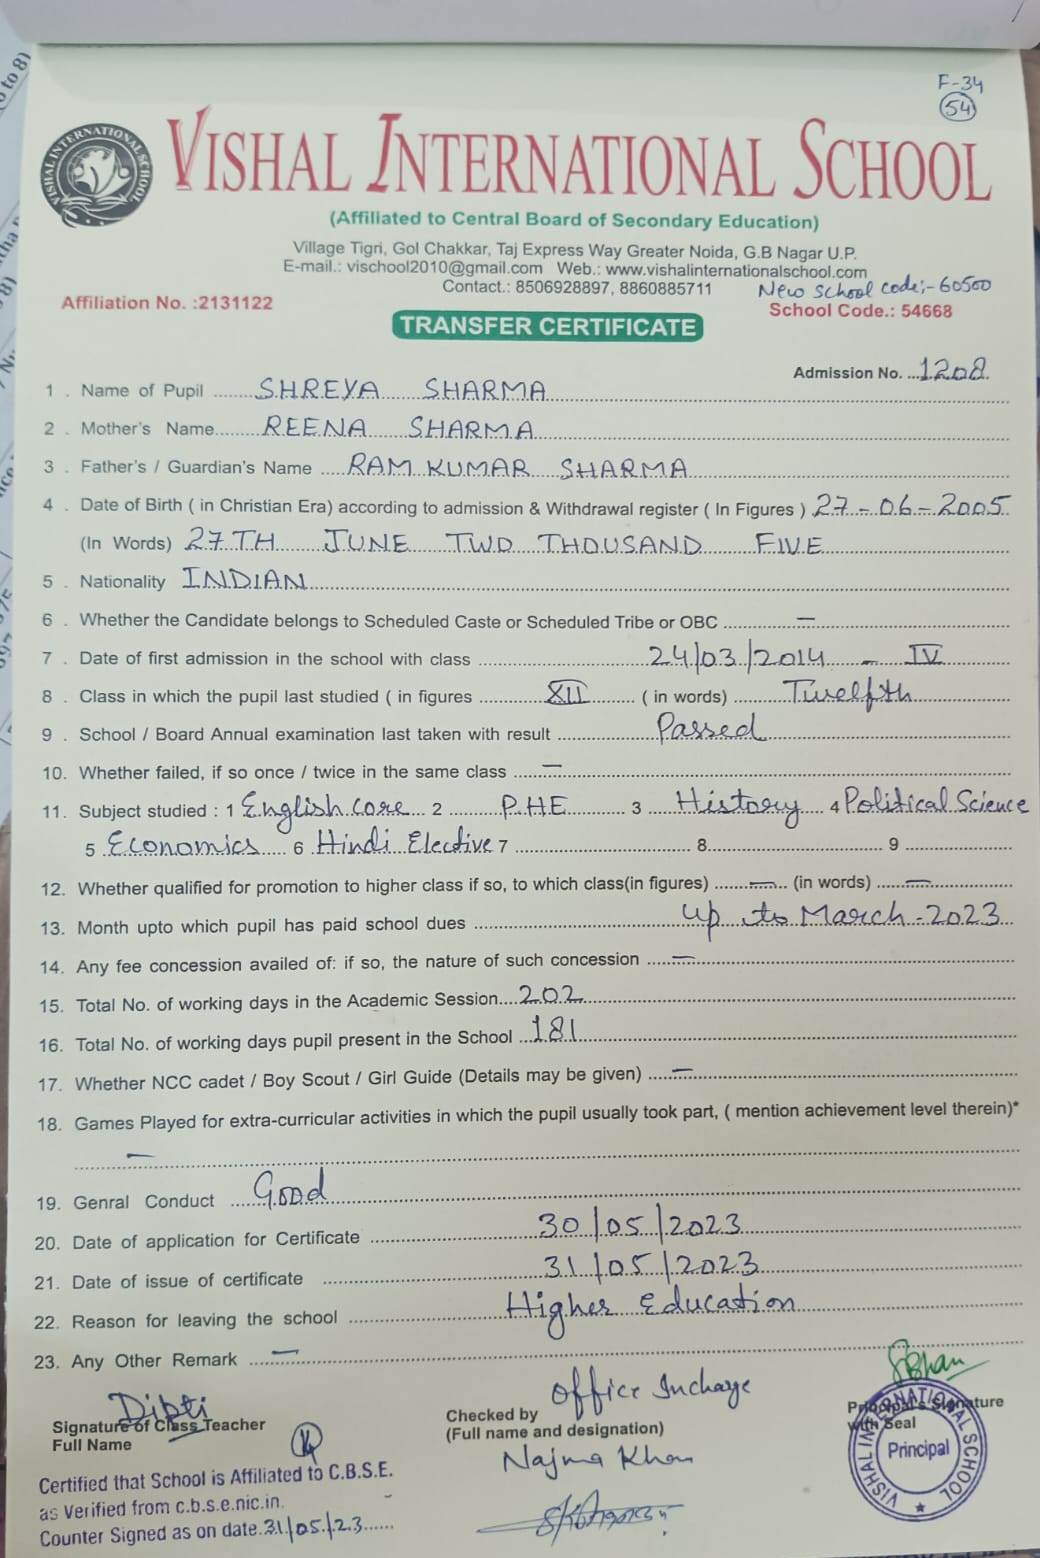 F-34
54
VISHAL INTERNATIONAL SCHOOL
VISHAL INTERNATIONAL SCHOOL
(Affiliated to Central Board of Secondary Education)
Village Tigri, Gol Chakkar, Taj Express Way Greater Noida, G.B Nagar U.P.
E-mail.: vischool2010@gmail.com Web.: www.vishalinternationalschool.com
Contact.: 8506928897, 8860885711 New School code:- 60500
Affiliation No. :2131122 School Code.: 54668
TRANSFER CERTIFICATE
Admission No. ...1208
1 . Name of Pupil ........SHREYA SHARMA
2 . Mother's Name........REENA SHARMA
3 . Father's / Guardian's Name .....RAM KUMAR SHARMA
4 . Date of Birth ( in Christian Era) according to admission & Withdrawal register ( In Figures ) 27-06-2005
(In Words) 27TH JUNE TWO THOUSAND FIVE
5 . Nationality INDIAN
6 . Whether the Candidate belongs to Scheduled Caste or Scheduled Tribe or OBC ............—
7 . Date of first admission in the school with class ............24/03/2014 - IV
8 . Class in which the pupil last studied ( in figures ............XII............ ( in words) ........Twelfth
9 . School / Board Annual examination last taken with result ............Passed
10. Whether failed, if so once / twice in the same class .....—
11. Subject studied : 1 English core 2 PHE 3 History 4 Political Science
5 Economics 6 Hindi Elective 7 ............ 8............ 9 ............
12. Whether qualified for promotion to higher class if so, to which class(in figures) .....—..... (in words) .....—
13. Month upto which pupil has paid school dues ............up to March-2023
14. Any fee concession availed of: if so, the nature of such concession .....—
15. Total No. of working days in the Academic Session....202
16. Total No. of working days pupil present in the School ...181
17. Whether NCC cadet / Boy Scout / Girl Guide (Details may be given) .....—
18. Games Played for extra-curricular activities in which the pupil usually took part, ( mention achievement level therein)*
—
19. Genral Conduct .....Good
20. Date of application for Certificate ............30/05/2023
21. Date of issue of certificate ............31/05/2023
22. Reason for leaving the school ............Higher Education
23. Any Other Remark .....—
Dipti
Signature of Class Teacher
Full Name
Office Incharge
Checked by
(Full name and designation)
Najma Khan
Principal's Signature
with Seal
VISHAL INTERNATIONAL SCHOOL
Principal
Certified that School is Affiliated to C.B.S.E.
as Verified from c.b.s.e.nic.in.
Counter Signed as on date.31/05/23......